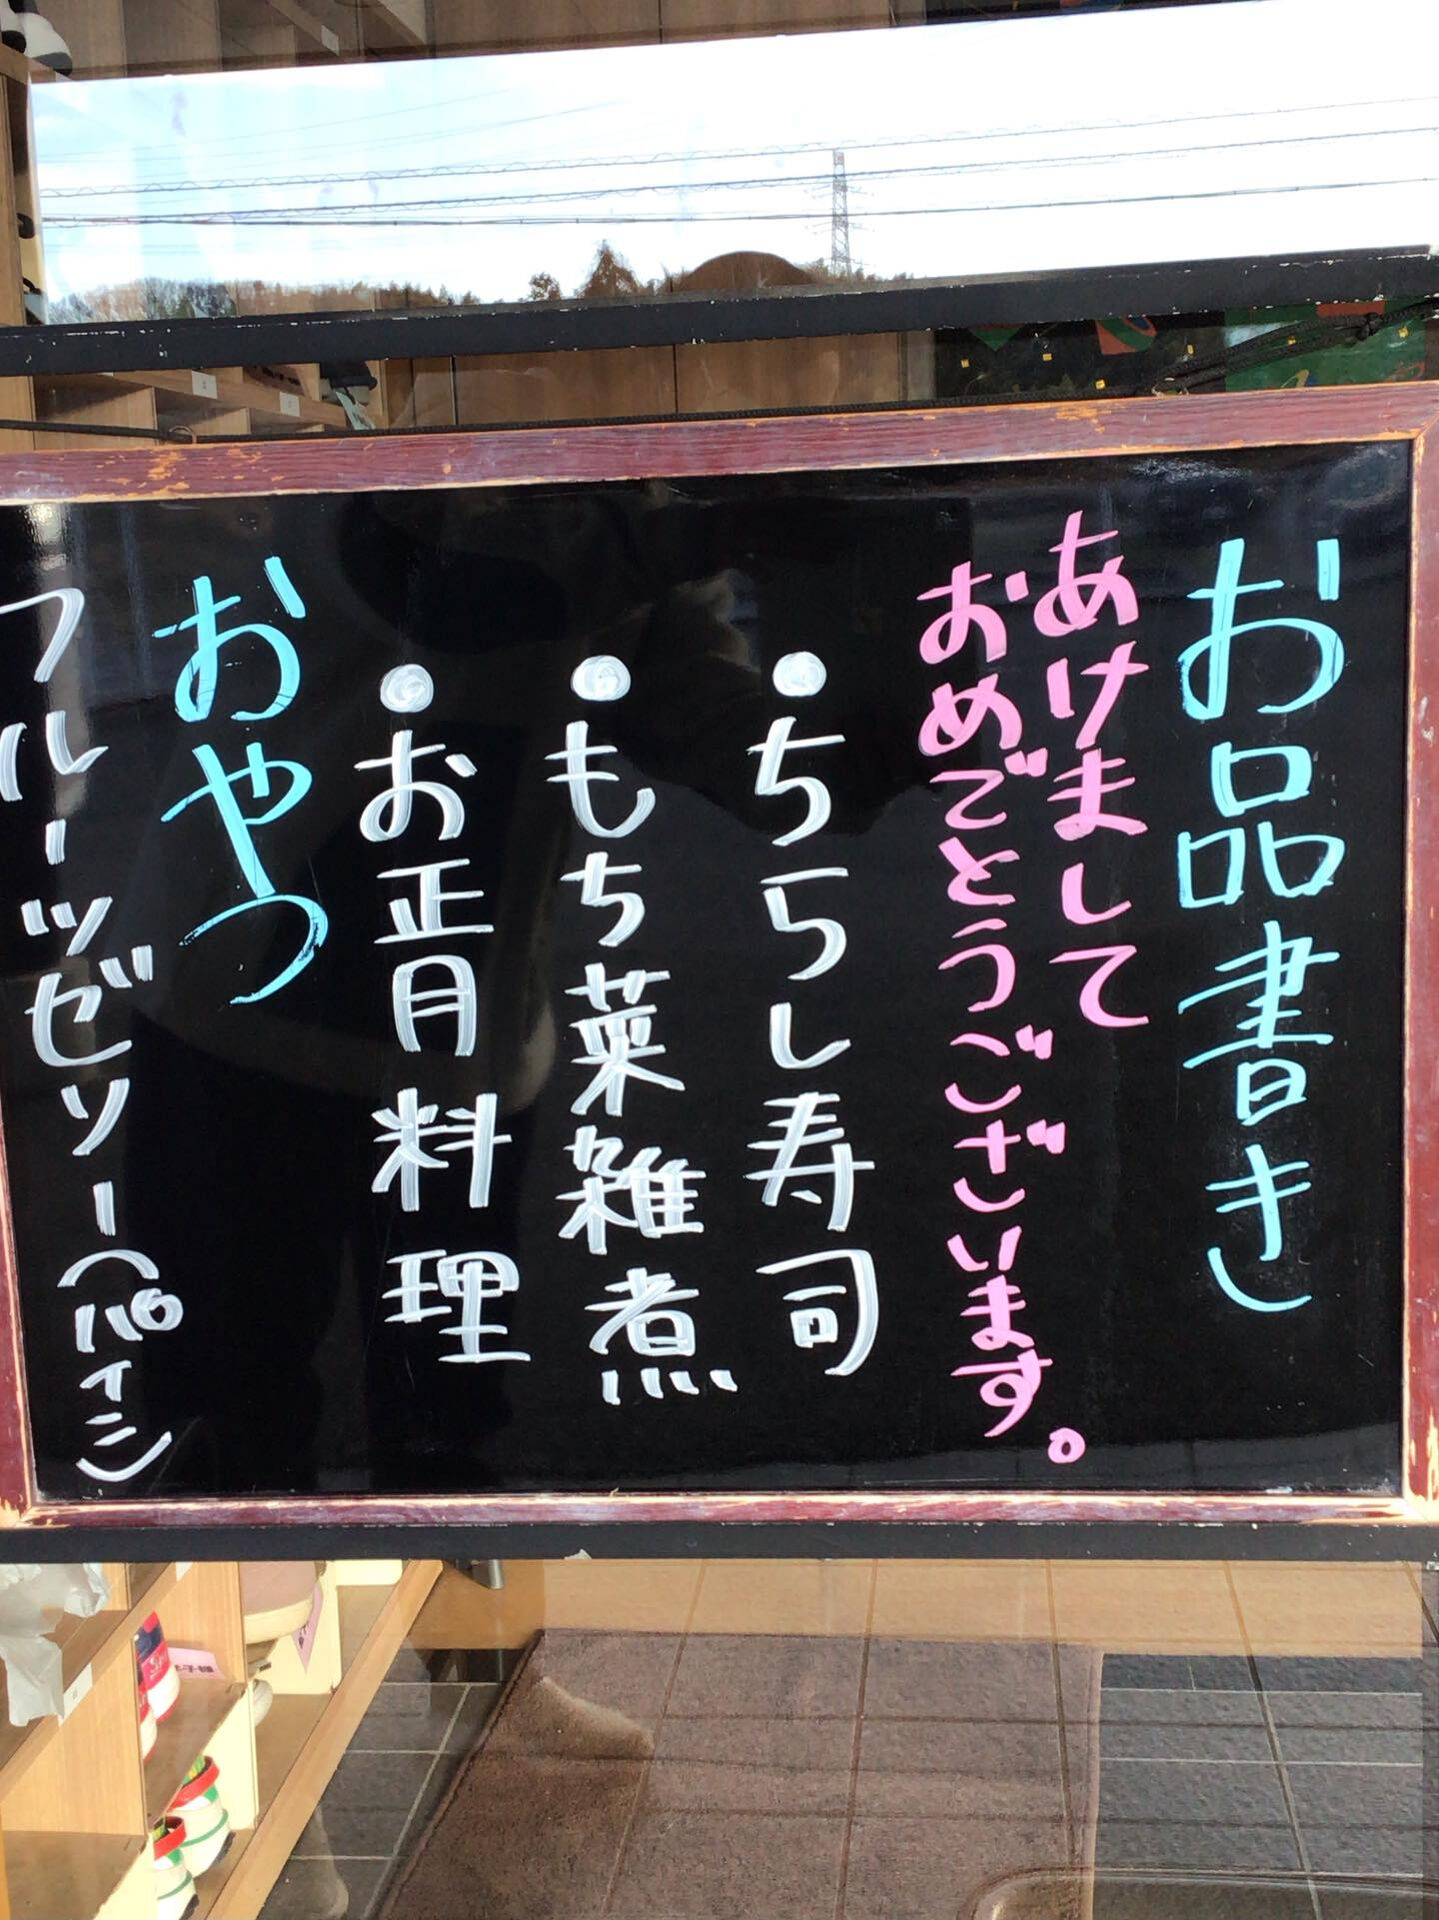 お品書き
あけまして
おめでとうございます。
・ちらし寿司
・もち菜雑煮
・お正月料理
おやつ
フルーツゼリー(パイン)